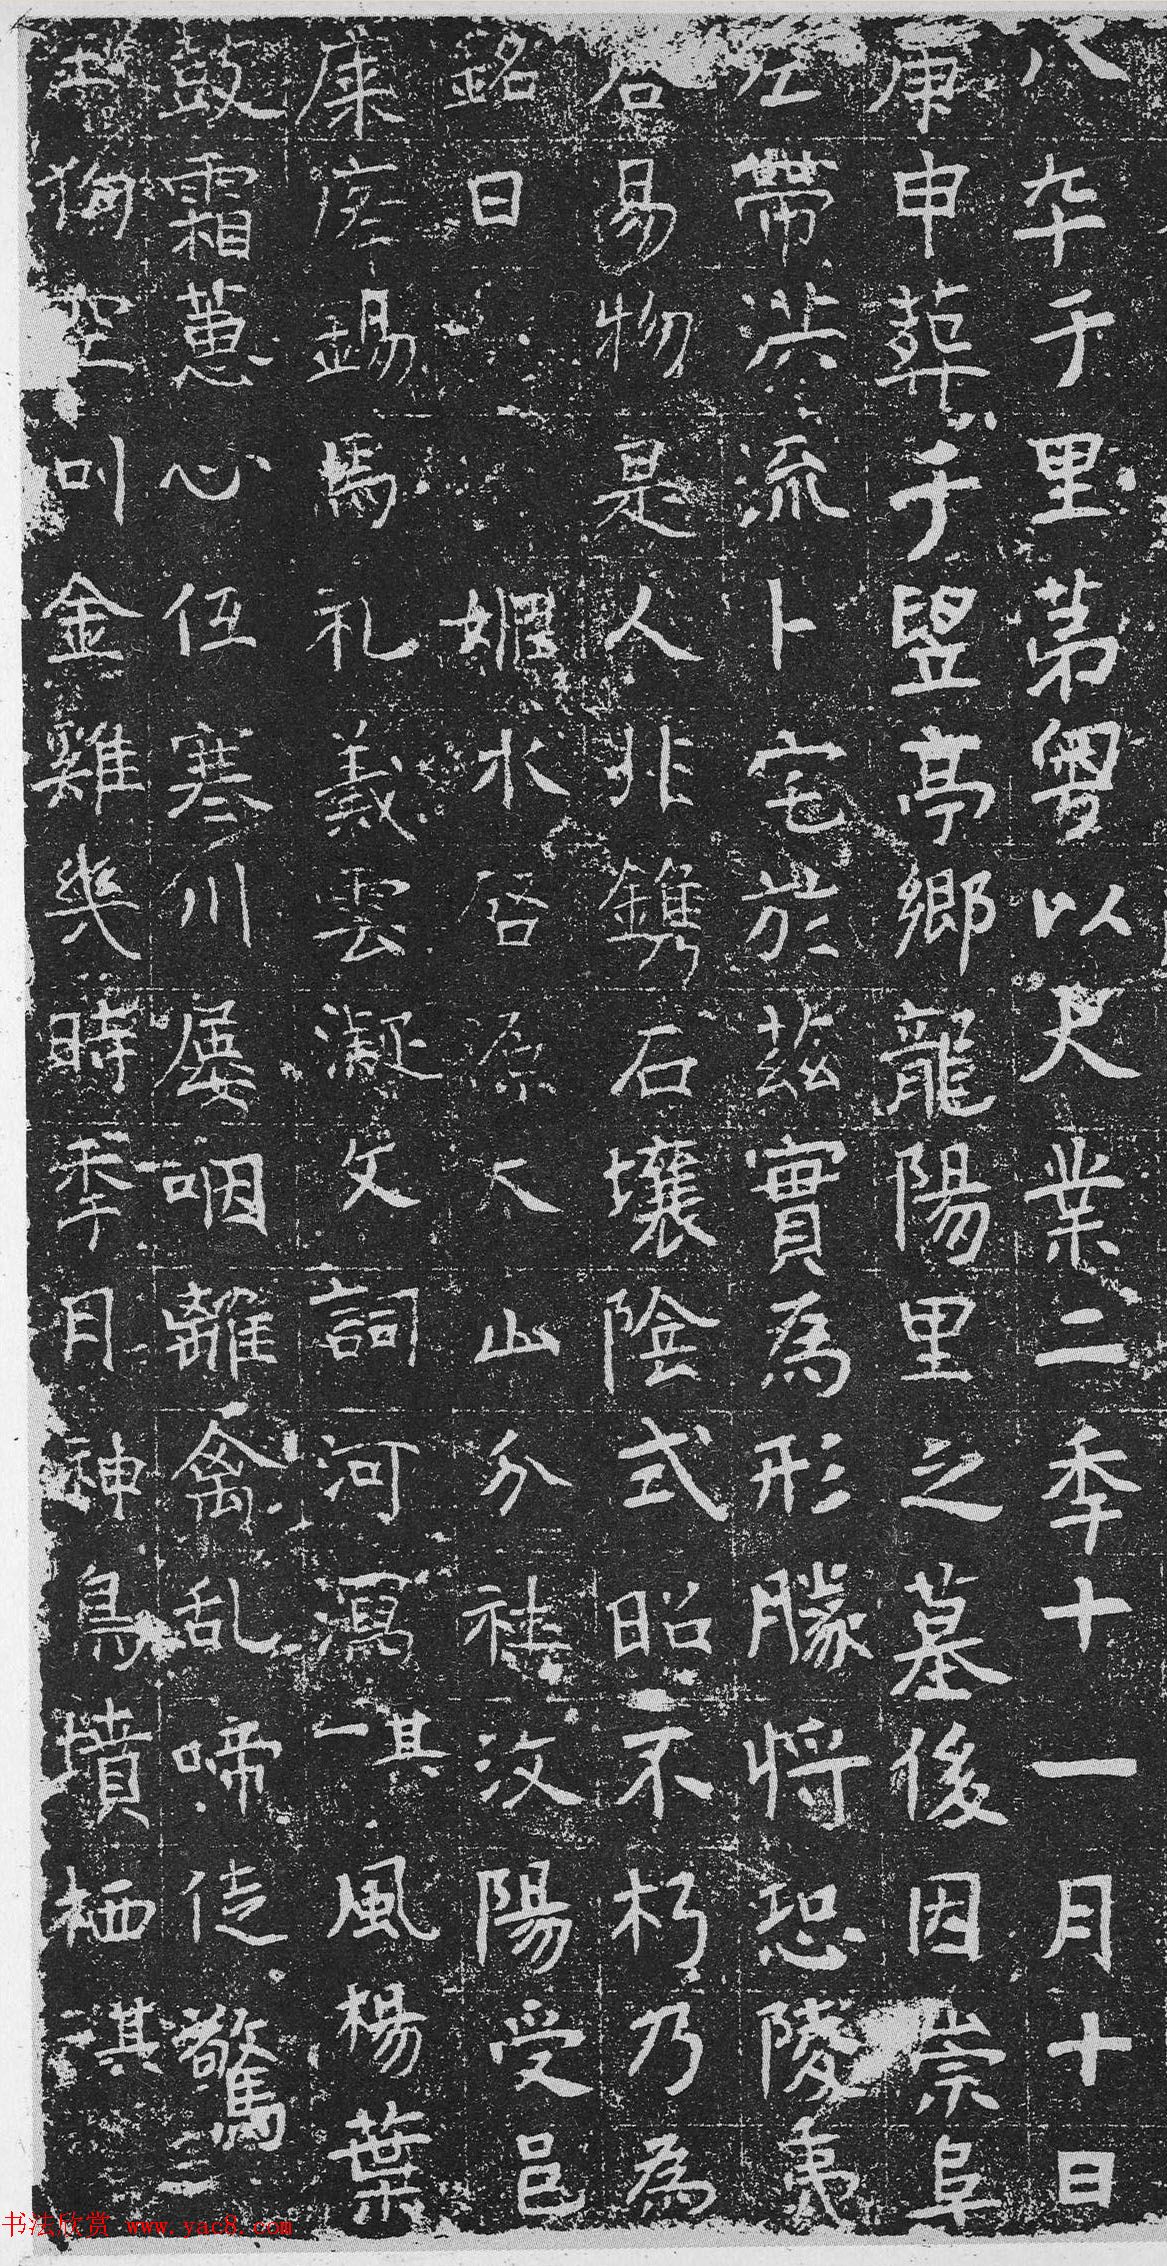 八卒于里苐粤以大業二秊十一月十日
庚申葬于竪亭鄉龍陽里之墓後因崇阜
左帶洪流卜宅於茲實爲形勝將恐陵夷
谷易物是人非鐫石壤陰式昭不朽乃爲
銘曰 媯水啓源大山分社汶陽受邑
康錫馬礼義雲凝文詞河瀉其一風楊葉
鼓霜蕙心低寒川屢咽離禽乱啼徒驚三
狗空叫金雞幾時秊月神鳥墳栖其二
书法欣赏 www.yac8.com